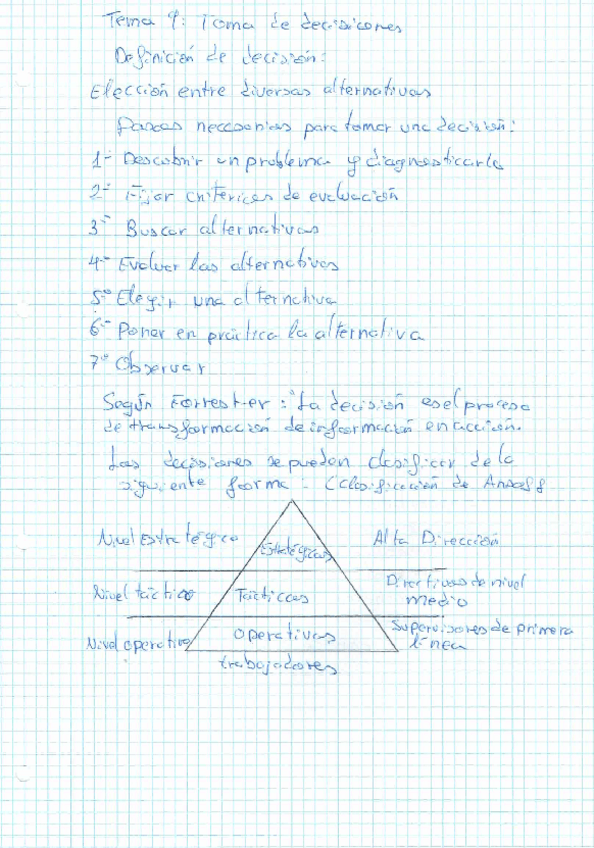 Tema 9: Toma de decisiones
Definición de decisión:
Elección entre diversas alternativas
Pasos necesarios para tomar una decisión:
1º Descubrir un problema y diagnosticarlo
2º Fijar criterios de evaluación
3º Buscar alternativas
4º Evaluar las alternativas
5º Elegir una alternativa
6º Poner en práctica la alternativa
7º Observar
Según Forrester: "La decisión es el proceso
de transformación de información en acción.
Las decisiones se pueden clasificar de la
siguiente forma: Clasificación de Ansoff
Nivel Estratégico Estratégicas Alta Dirección
Nivel táctico Tácticas Directivos de nivel
medio
Nivel operativo Operativas Supervisores de primera
línea
trabajadores